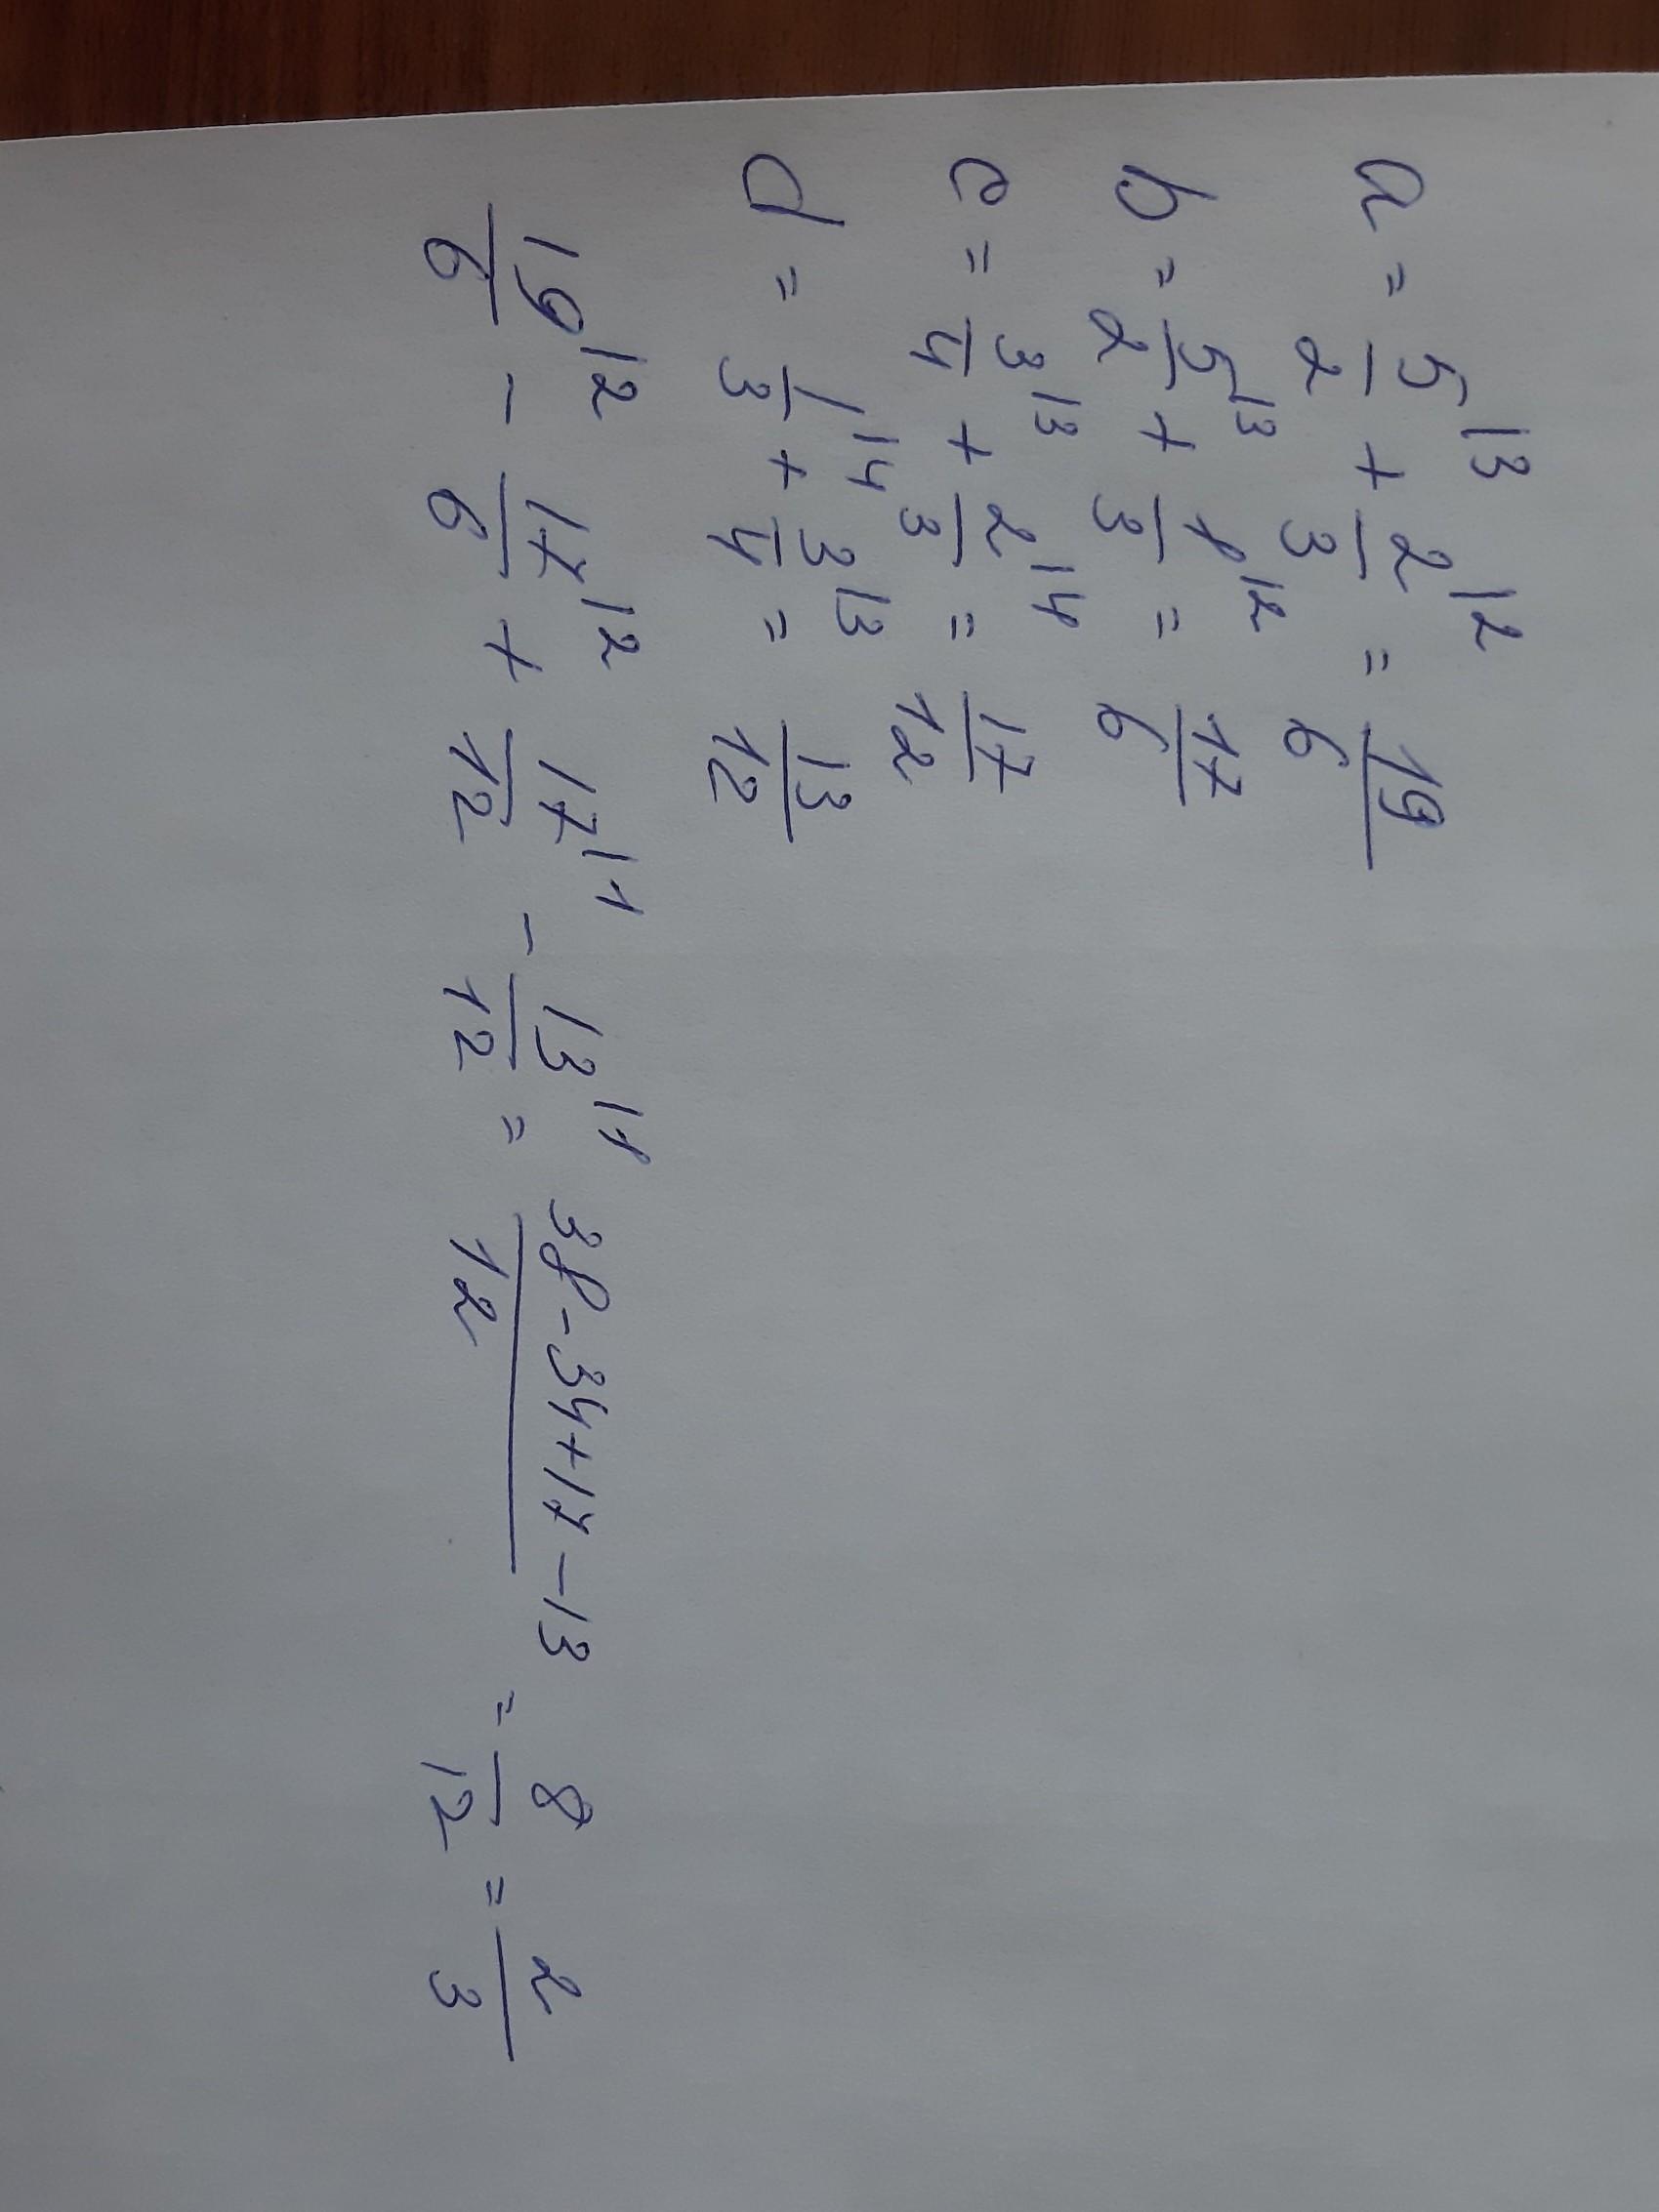 a = 5/2 |3 + 2/3 |2 = 19/6
b = 5/2 |3 + 1/3 |2 = 17/6
c = 3/4 |3 + 2/3 |4 = 17/12
d = 1/3 |4 + 3/4 |3 = 13/12
19/6 |2 - 17/6 |2 + 17/12 |1 - 13/12 |1 = 38-34+17-13/12 = 8/12 = 2/3